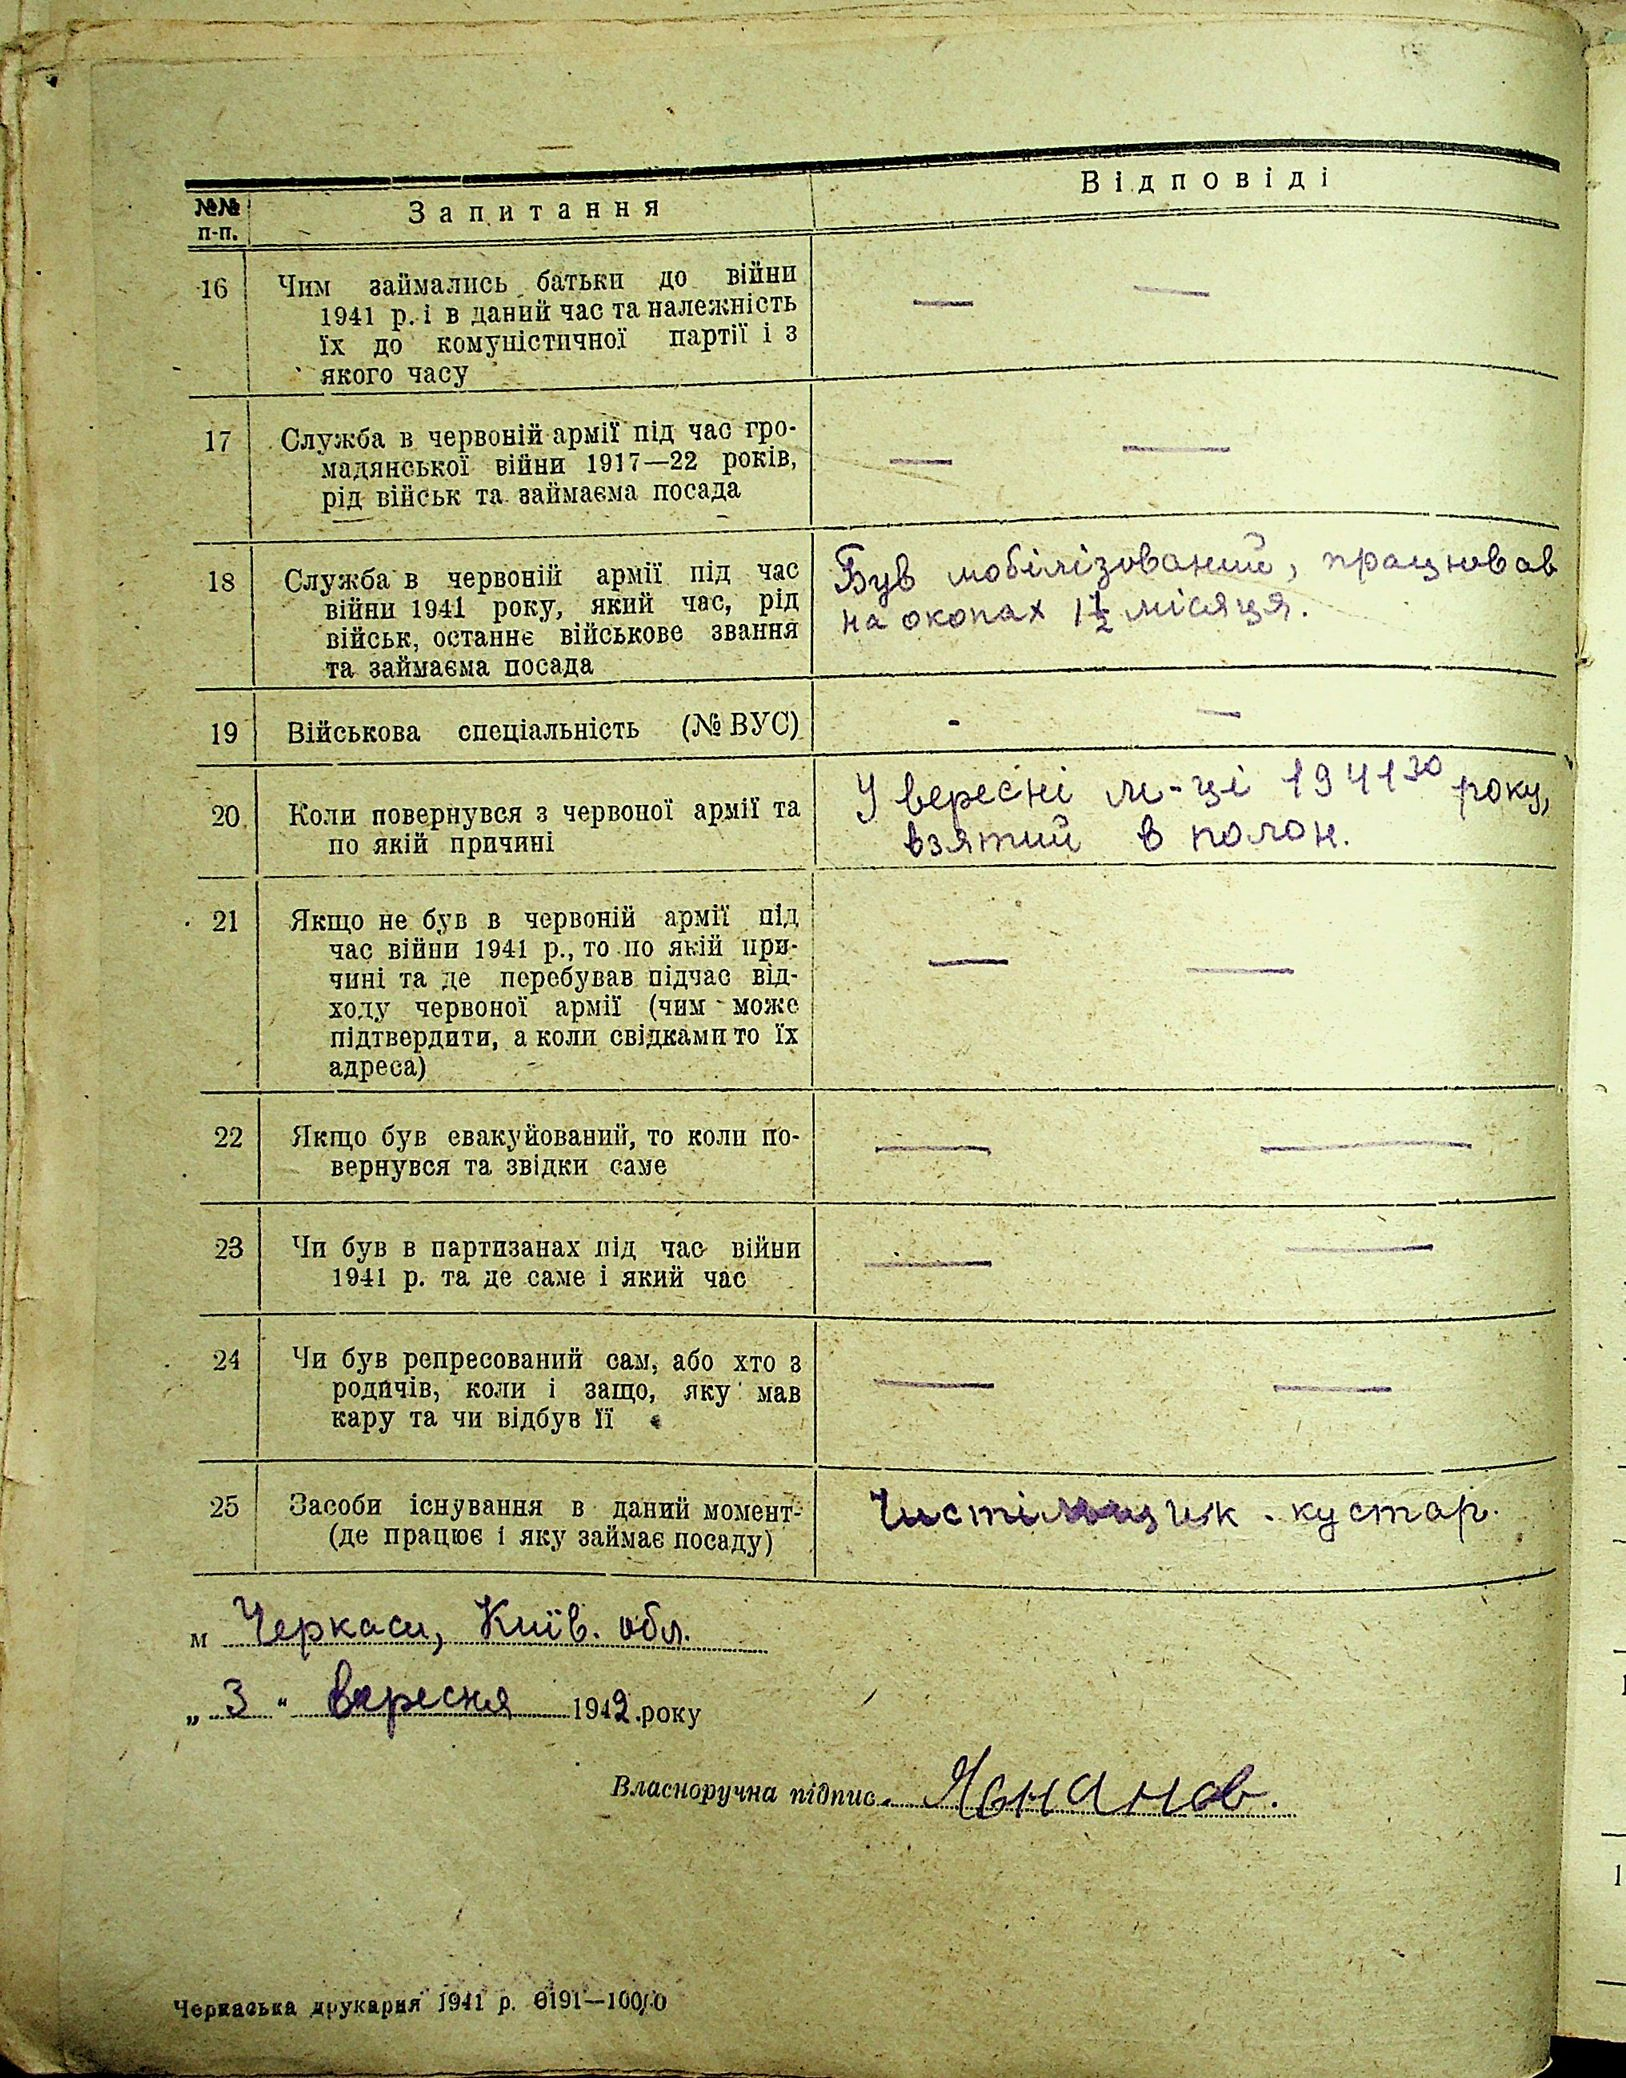 №№ п-п. Запитання Відповіді
16 Чим займались батьки до війни — —
1941 р. і в даний час та належність
їх до комуністичної партії і з
якого часу
17 Служба в червоній армії під час гро- — —
мадянської війни 1917—22 років,
рід військ та займаєма посада
18 Служба в червоній армії під час Був мобілізований, працював
війни 1941 року, який час, рід на окопах 1½ місяця.
військ, останнє військове звання
та займаєма посада
19 Військова спеціальність (№ ВУС) - —
20 Коли повернувся з червоної армії та У вересні м-ці 1941го року,
по якій причині взятий в полон.
21 Якщо не був в червоній армії під — —
час війни 1941 р., то по якій при-
чині та де перебував підчас від-
ходу червоної армії (чим може
підтвердити, а коли свідками то їх
адреса)
22 Якщо був евакуйований, то коли по- — —
вернувся та звідки саме
23 Чи був в партизанах під час війни — —
1941 р. та де саме і який час
24 Чи був репресований сам, або хто з — —
родичів, коли і защо, яку мав
кару та чи відбув її
25 Засоби існування в даний момент- Чистільщик - кустар.
(де працює і яку займає посаду)
м Черкаси, Київ. обл.
„ 3 " вересня 1942 року
Власноручна підпис.
Черкаська друкарня 1941 р.